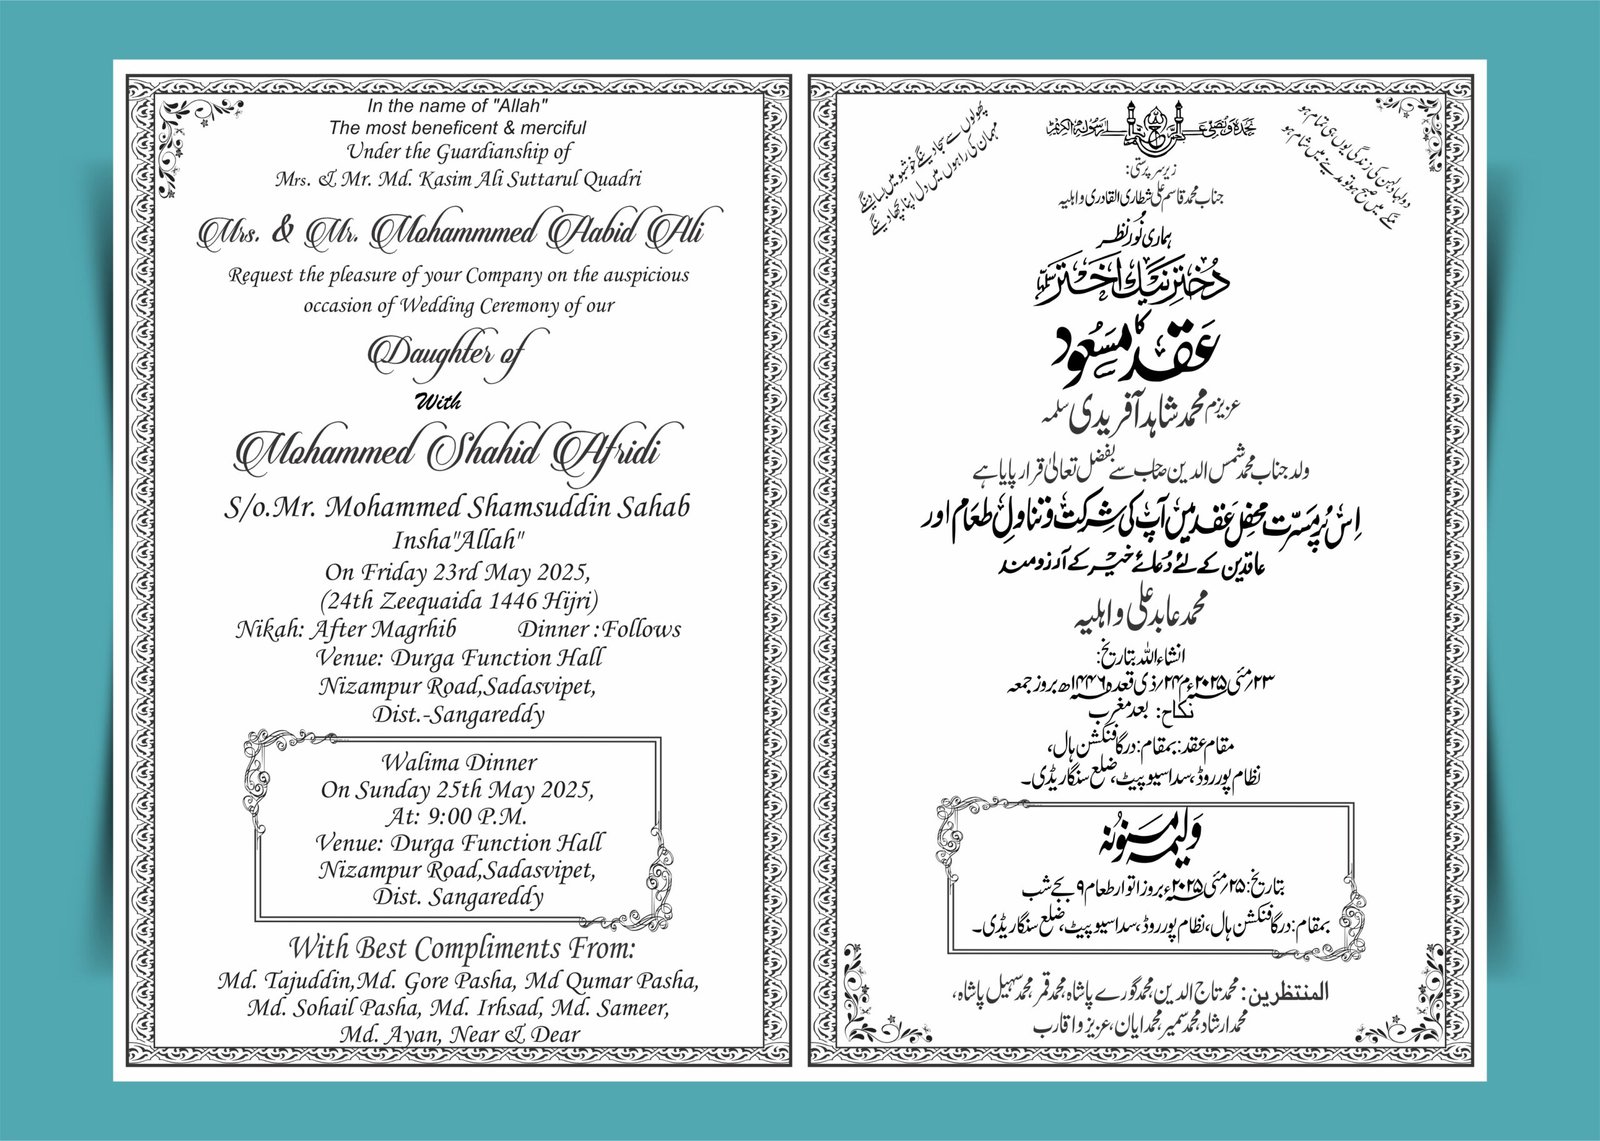 In the name of "Allah"
The most beneficent & merciful
Under the Guardianship of
Mrs. & Mr. Md. Kasim Ali Suttarul Quadri
Mrs. & Mr. Mohammmed Aabid Ali
Request the pleasure of your Company on the auspicious
occasion of Wedding Ceremony of our
Daughter of
With
Mohammed Shahid Afridi
S/o.Mr. Mohammed Shamsuddin Sahab
Insha"Allah"
On Friday 23rd May 2025,
(24th Zeequaida 1446 Hijri)
Nikah: After Magrhib Dinner :Follows
Venue: Durga Function Hall
Nizampur Road,Sadasvipet,
Dist.-Sangareddy
Walima Dinner
On Sunday 25th May 2025,
At: 9:00 P.M.
Venue: Durga Function Hall
Nizampur Road,Sadasvipet,
Dist. Sangareddy
With Best Compliments From:
Md. Tajuddin,Md. Gore Pasha, Md Qumar Pasha,
Md. Sohail Pasha, Md. Irhsad, Md. Sameer,
Md. Ayan, Near & Dear
پھولوں سے سجا دینگے خوشبو میں بسا دینگے
مہمان کی راہوں میں دل اپنا بچھا دینگے
دولہا دلہن کی زندگی یوں ہی تمام ہو
مکے میں صبح ہو تو مدینے میں شام ہو
زیر سرپرستی:
جناب محمد قاسم علی شطاری القادری و اہلیہ
ہماری نُورِ نظر
دُختر نیک اختر سلمہا
کا
عقد مسعود
عزیزم محمد شاہد آفریدی سلمہ
ولد جناب محمد شمس الدین صاحب سے بفضل تعالیٰ قرار پایا ہے
اِس پُر مسرّت محفلِ عقد میں آپ کی شرکت و تناولِ طعام اور
عاقدین کے لئے دُعائے خیر کے آرزومند
محمد عابد علی و اہلیہ
انشاء اللہ بتاریخ:
۲۳؍مئی ۲۰۲۵ء م ۲۴؍ذی قعدہ ۱۴۴۶ھ بروز جمعہ
نکاح: بعد مغرب
مقام عقد: بمقام: درگا فنکشن ہال،
نظام پور روڈ، سداسیو پیٹ، ضلع سنگاریڈی۔
ولیمہ مسنونہ
بتاریخ: ۲۵؍مئی ۲۰۲۵ء بروز اتوار طعام ۹ بجے شب
بمقام: درگا فنکشن ہال، نظام پور روڈ، سداسیو پیٹ، ضلع سنگاریڈی۔
المنتظرین: محمد تاج الدین، محمد گورے پاشاہ، محمد قمر، محمد سہیل پاشاہ،
محمد ارشاد، محمد سمیر، محمد ایان، عزیز و اقارب